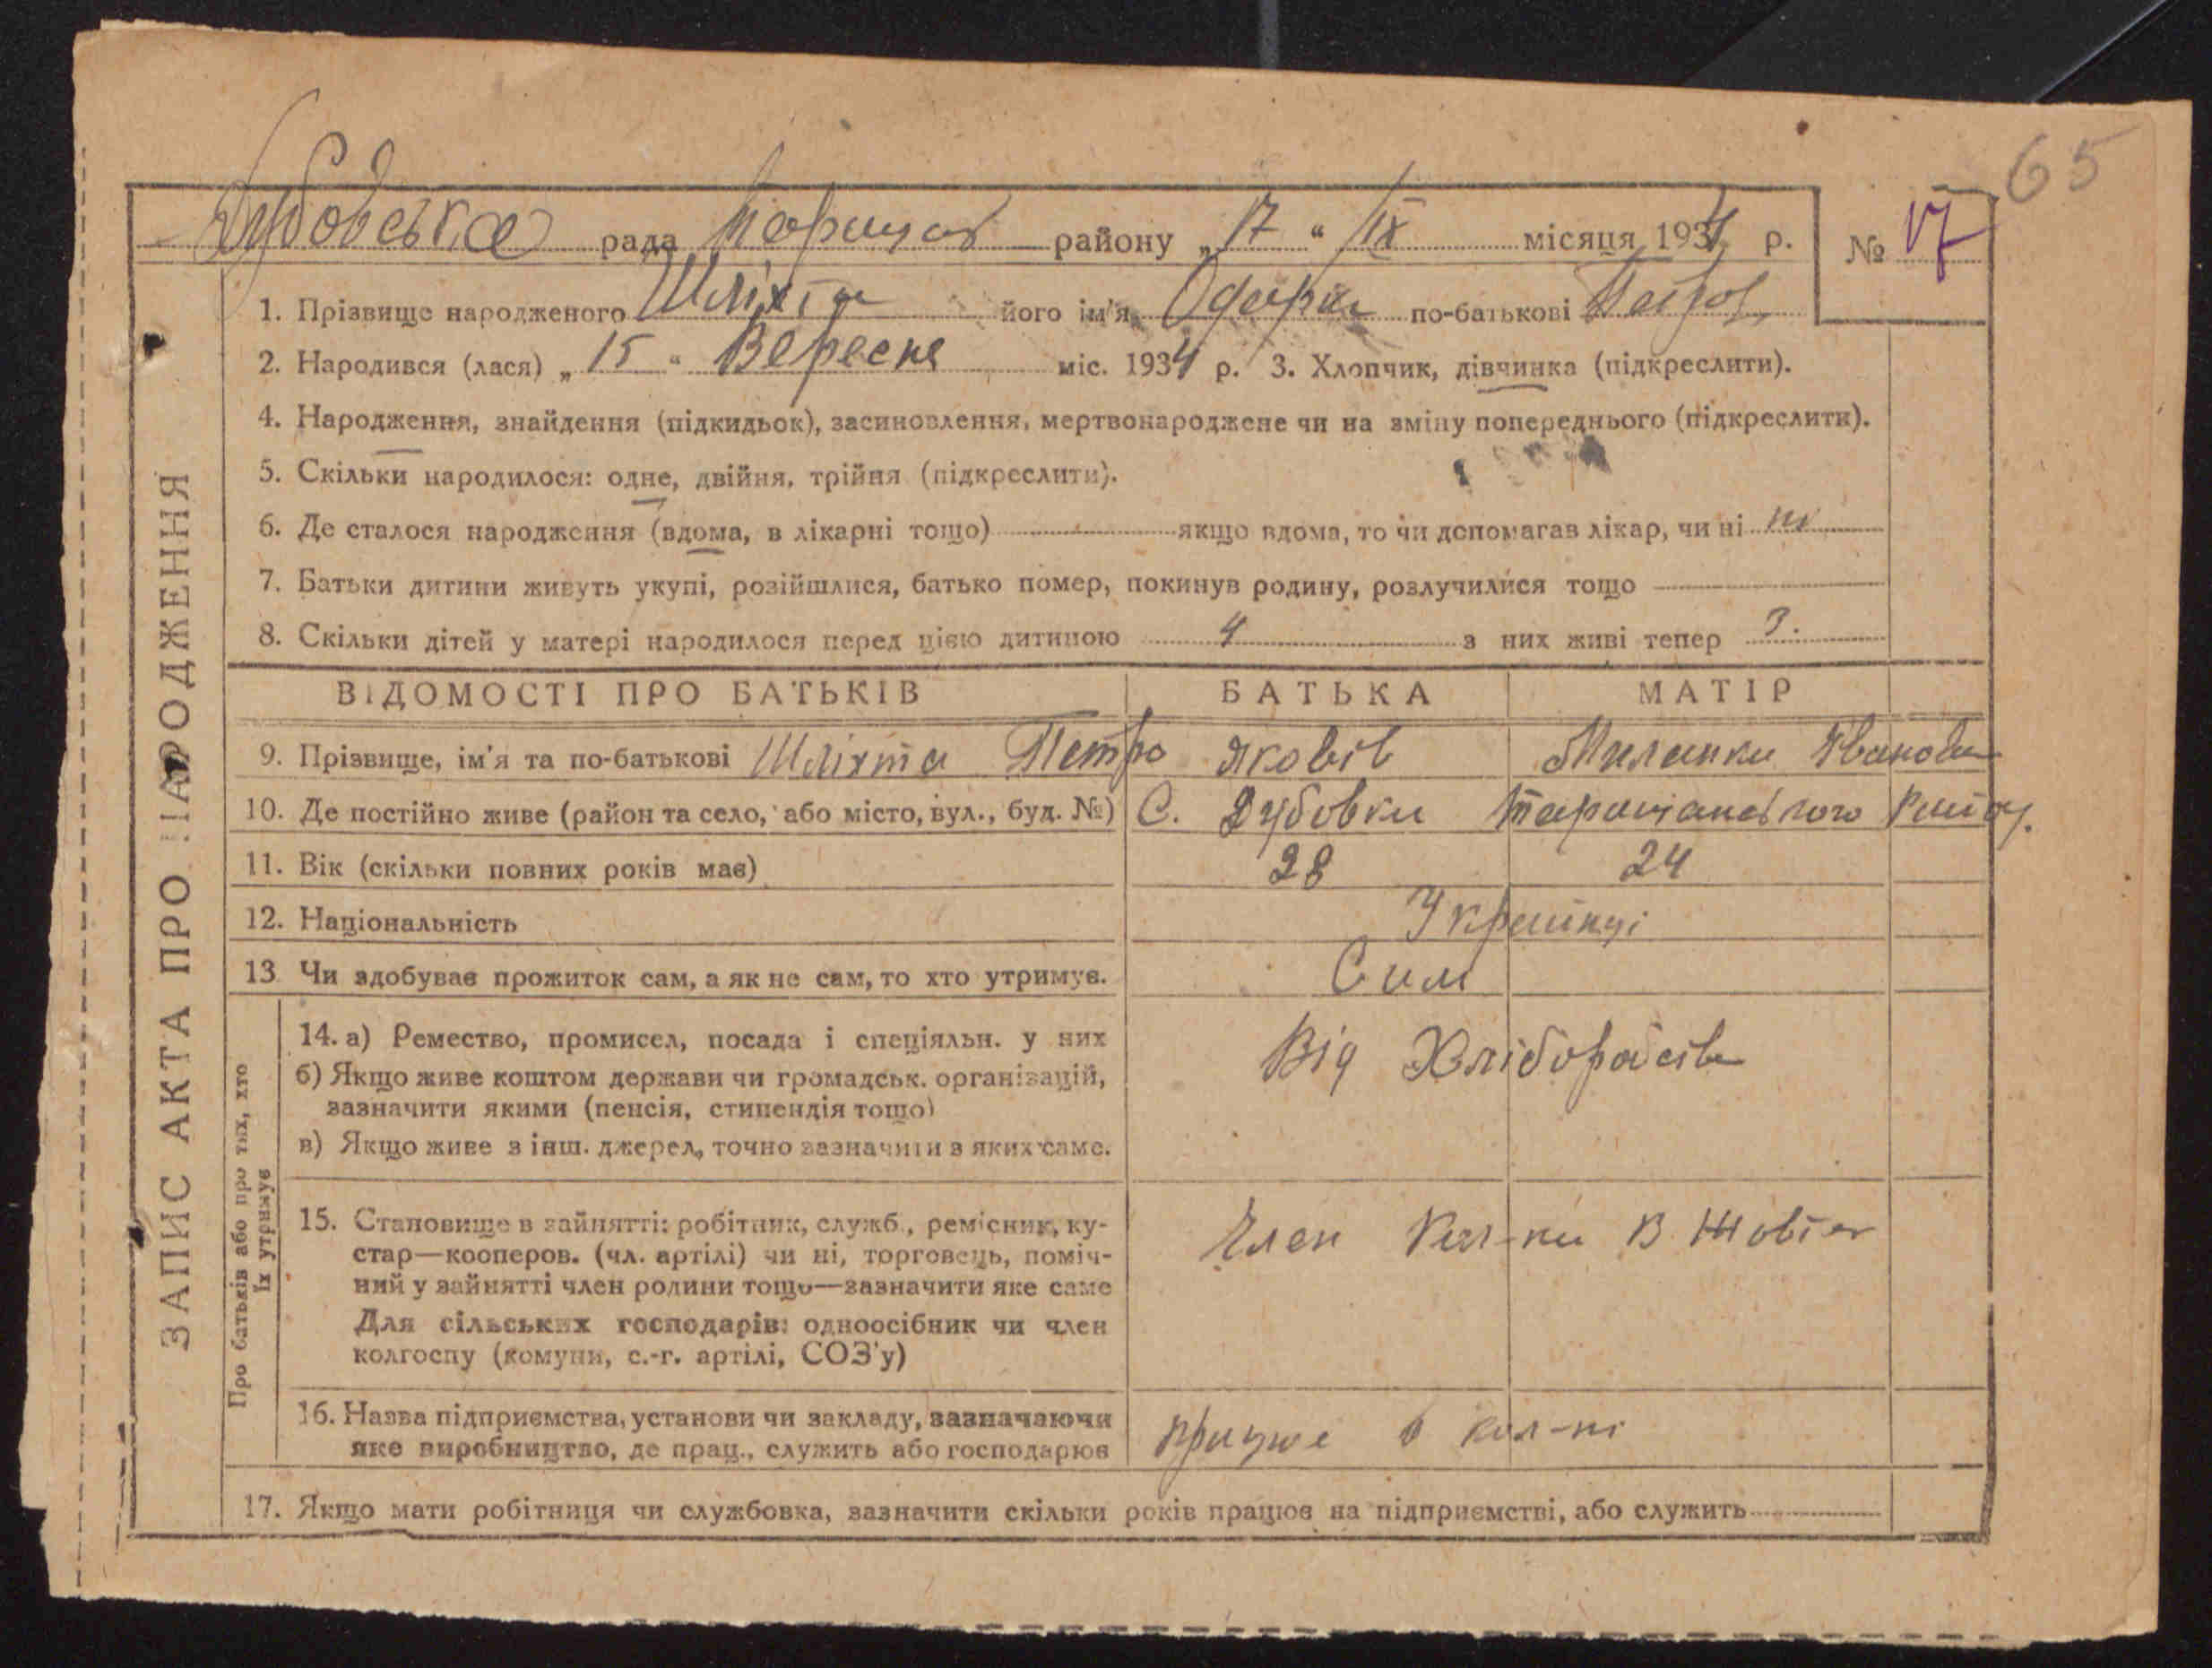 65
Дубовська рада Таращан району „17“ IX місяця 1934 р. № 17
1. Прізвище народженого Шліхта його ім'я Одарка по-батькові Петров
2. Народився (лася) „15“ Вересня міс. 1934 р. 3. Хлопчик, дівчинка (підкреслити).
4. Народження, знайдення (підкидьок), засиновлення, мертвонароджене чи на зміну попереднього (підкреслити).
5. Скільки народилося: одне, двійня, трійня (підкреслити).
6. Де сталося народження (вдома, в лікарні тощо) якщо вдома, то чи допомагав лікар, чи ні ні
7. Батьки дитини живуть укупі, розійшлися, батько помер, покинув родину, розлучилися тощо
8. Скільки дітей у матері народилося перед цією дитиною 4 з них живі тепер 3.
ВІДОМОСТІ ПРО БАТЬКІВ БАТЬКА МАТІР
9. Прізвище, ім'я та по-батькові Шліхта Петро Яковів Миланка Иванова
10. Де постійно живе (район та село, або місто, вул., буд. №) С. Дубовки Таращанського
11. Вік (скільки повних років має) 28 24
12. Національність Українці
13 Чи здобуває прожиток сам, а як не сам, то хто утримує. Сам
14. а) Ремество, промисел, посада і спеціяльн. у них Від Хліборобств
б) Якщо живе коштом держави чи громадськ. організацій,
зазначити якими (пенсія, стипендія тощо)
в) Якщо живе з інш. джерел, точно зазначити з яких саме.
15. Становище в зайнятті: робітник, служб., ремісник, ку-
стар—кооперов. (чл. артілі) чи ні, торговець, поміч- Член Кол-пи В. Жовтен
ний у зайнятті член родини тощо—зазначити яке саме
Для сільських господарів: одноосібник чи член
колгоспу (комуни, с.-г. артілі, СОЗ'у)
16. Назва підприємства, установи чи закладу, зазначаючи
яке виробництво, де прац., служить або господарює працює в кол-пі
17. Якщо мати робітниця чи службовка, зазначити скільки років працює на підприємстві, або служить
ЗАПИС АКТА ПРО НАРОДЖЕННЯ
Про батьків або про тих, хто
їх утримує